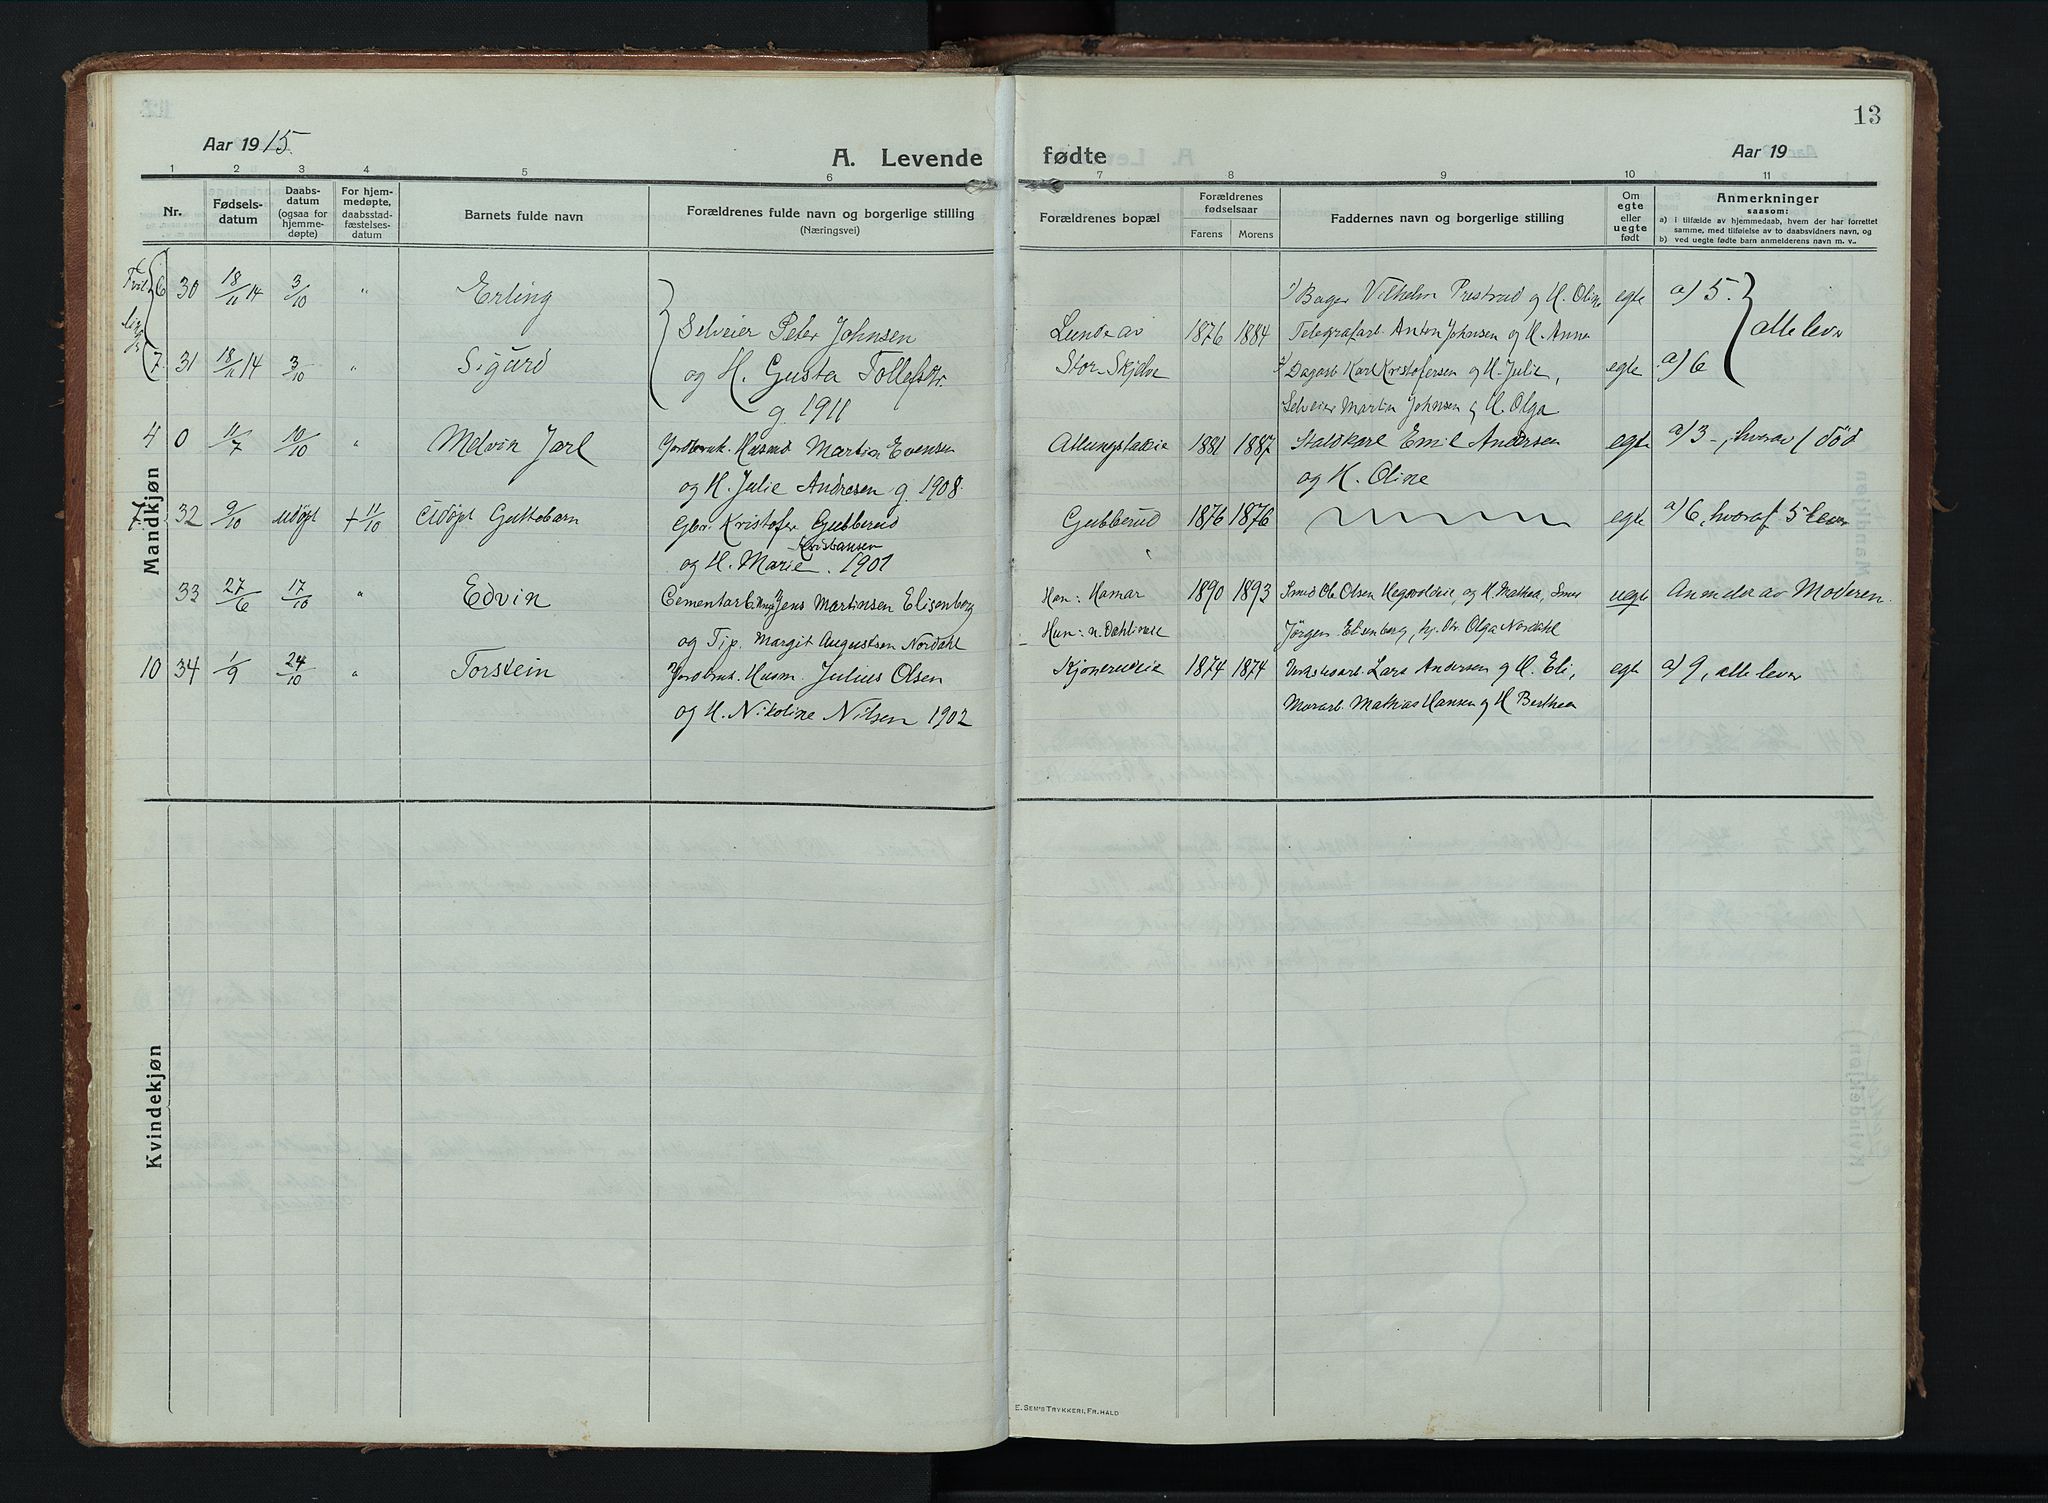 13
Aar 1915.
A. Levende fødte
Aar 19
1 2 3 4 5 6 7 8 9 10 11
Nr.
Fødselsdatum
Daabsdatum (ogsaa for hjemmedøpte)
For hjemmedøpte, daabsstadfæstelsesdatum
Barnets fulde navn
Forældrenes fulde navn og borgerlige stilling
(Næringsvei)
Forældrenes bopæl
Forældrenes fødselsaar
Farens Morens
Faddernes navn og borgerlige stilling
Om egte eller uegte født
Anmerkninger
saasom:
a) i tilfælde av hjemmedaab, hvem der har forrettet
samme, med tilføielse av to daabsvidners navn, og
b) ved uegte fødte barn anmelderens navn m. v..
Mandkjøn
6 30 18/11 14 3/10 " Erling 1) Bager Vilhelm Prestrud og H. Oline egte a) 5. alle lever
Selveier Peter Johnsen Lunde av 1876 1884 Telegrafarb. Anton Johnsen og H. Anna
7. 31 18/11 14 3/10 " Sigurd og H. Gusta Tollefsdtr. Stor-Skjelve Dagarb. Karl Kristofersen og H. Julie, egte a) 6
g. 1911 Selveier Martin Johnsen og H. Olga
4 0 11/7 10/10 " Melvin Jarl Jordbruk. Husmd Martin Evensen 1881 1887 Staldkarl Emil Andersen egte a) 3 -, hvorav 1 død
og H. Julie Andresen g. 1908. og H. Oline
7. 32 9/10 udøpt + 11/10 Udøpt Guttebarn Gbr. Kristofer Gubberud Gubberud 1876 1876 egte a) 6, hvoraf 5 lever
Kristiansen
og H. Marie. 1901
33 27/6 17/10 " Edvin Cementarb. Ungk. Jens Martinsen Elisenberg Han: Hamar 1890 1893 Smed Ole Olsen Hegsvoldeie, og H. Mathea, Smed uegte Anmeldt av Moderen.
og Pip. Margit Augustsen Nordahl Hun: n. Dahlineie Jørgen Elisenberg, Olga Nordahl
10 34 1/9 24/10 " Torstein Jordbruk. Husm. Julius Olsen Kjonerudeie 1874 1874 Verkstedarb. Lars Andersen og H. Eli, egte a) 9, alle lever
og H. Nikoline Nilsen 1902 Murarb. Mathias Hansen og H Berthea
Kvindekjøn
E. Sem's Trykkeri, Fr.hald